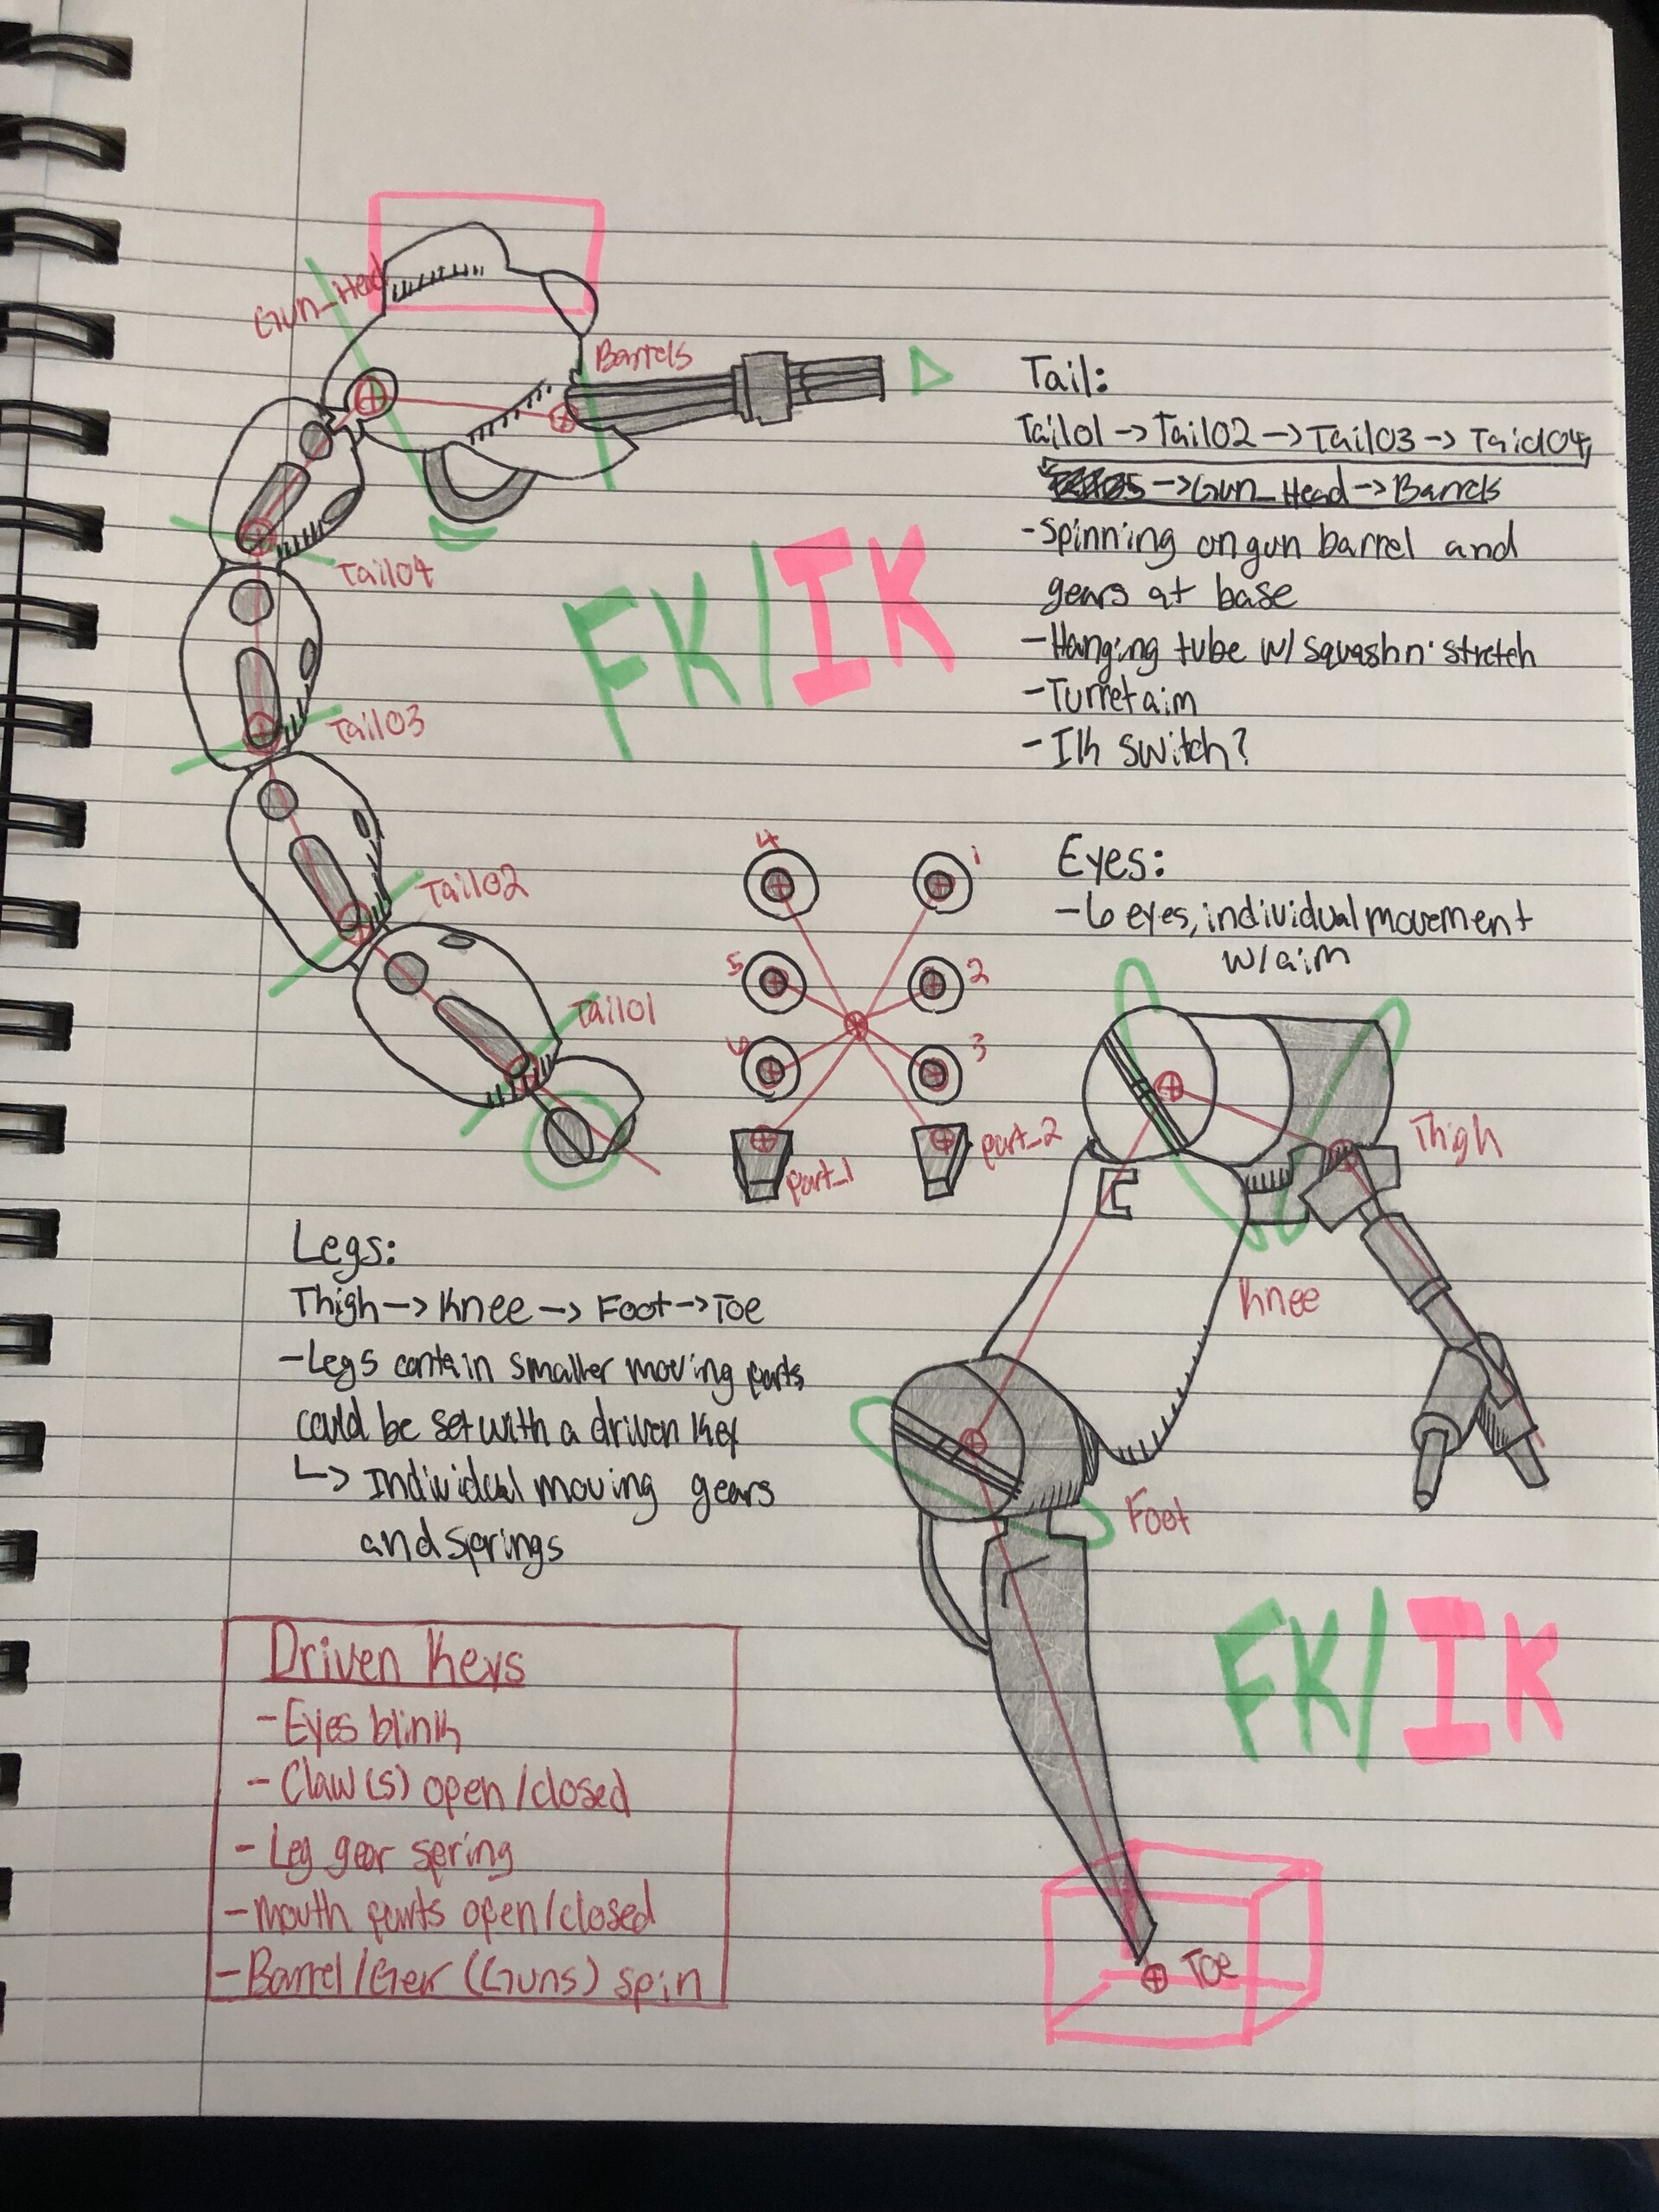 Gun_Head
Barrels
Tail04
Tail03
Tail02
Tail01
FK/IK
Tail:
Tail01 -> Tail02 -> Tail03 -> Tail04,
-> Gun_Head -> Barrels
- Spinning on gun barrel and
gears at base
- Hanging tube w/ squash n' stretch
- Turret aim
- Ik switch?
4
1
5
2
6
3
part_1
part_2
Eyes:
- 6 eyes, individual movement
w/ aim
Thigh
Knee
Foot
Toe
FK/IK
Legs:
Thigh -> Knee -> Foot -> Toe
- Legs contain smaller moving parts
could be set with a driven key
↳ Individual moving gears
and springs
Driven Keys
- Eyes blink
- Claw(s) open/closed
- Leg gear spring
- mouth parts open/closed
- Barrel/Gear (Guns) spin